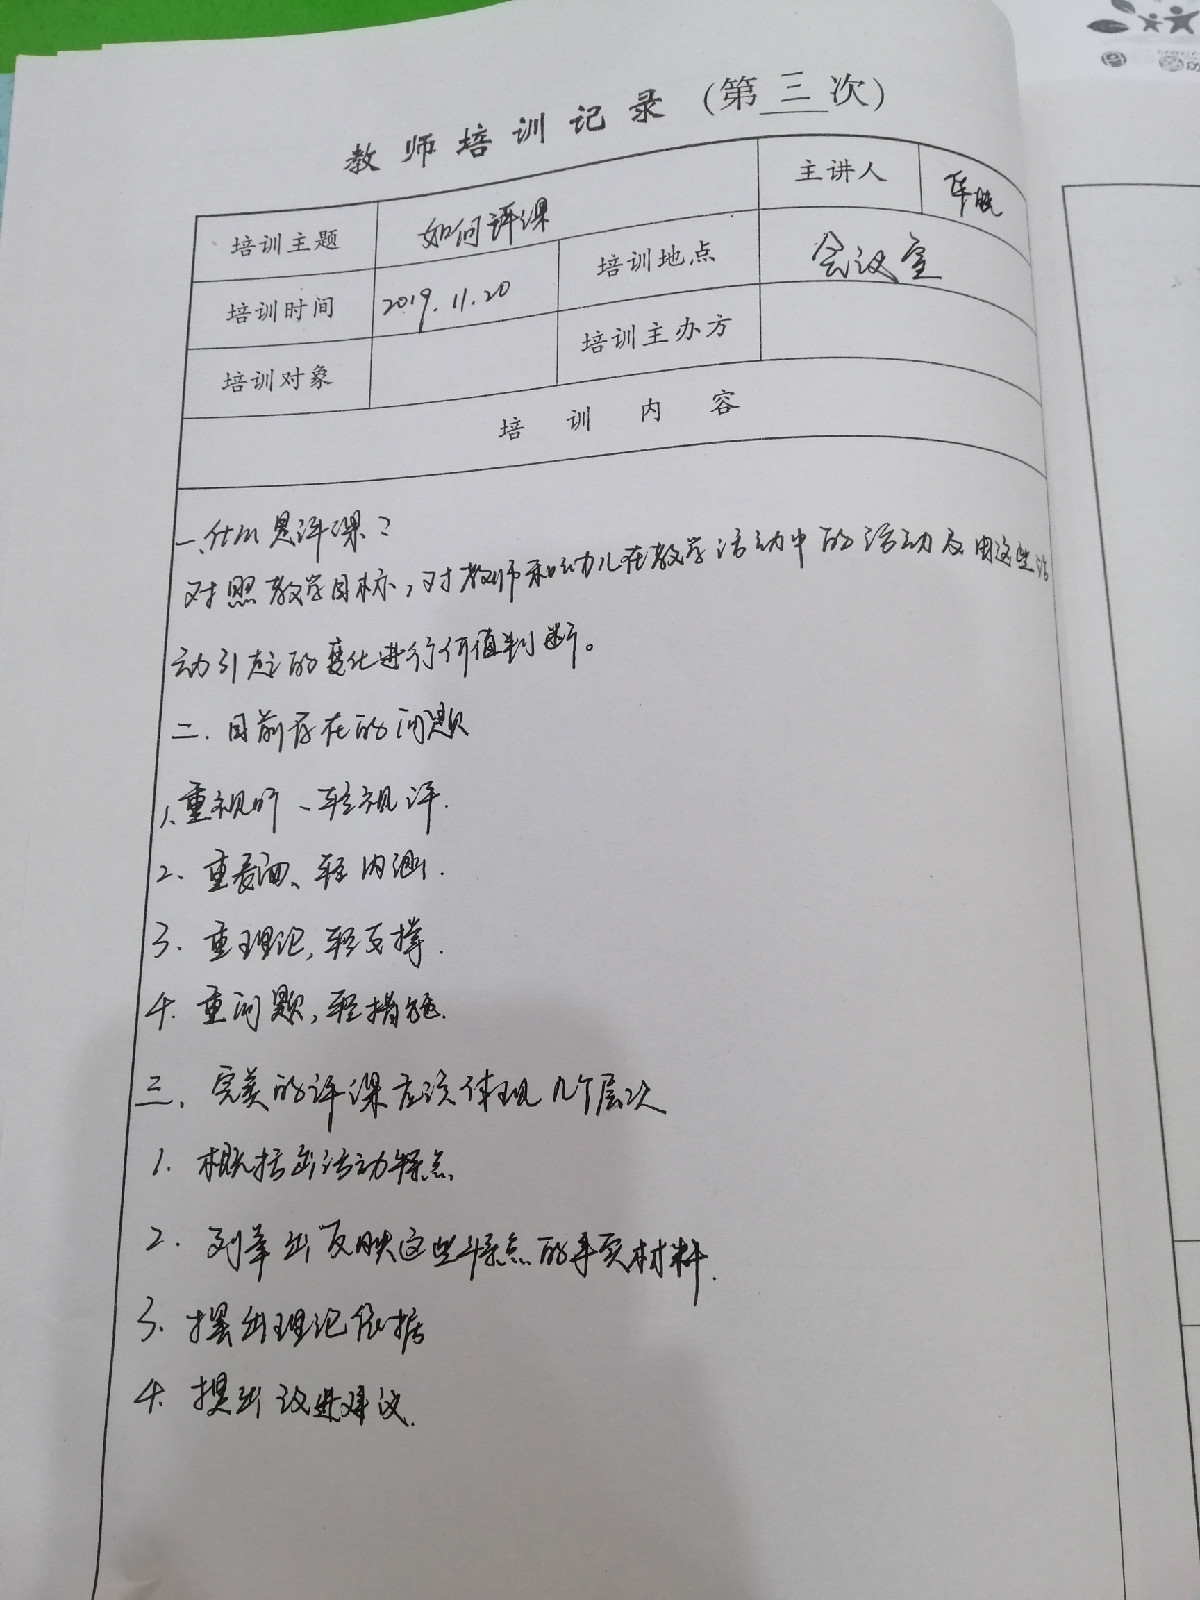 教师培训记录（第三次）
培训主题 如何评课 主讲人
培训时间 2019.11.20 培训地点 会议室
培训对象 培训主办方
培训内容
一、什么是评课？
对照教学目标，对教师和幼儿在教学活动中的活动及由这些活
动引起的变化进行价值判断。
二.目前存在的问题
1、重视听、轻视评.
2、重表面、轻内涵.
3.重理论，轻支撑.
4.重问题，轻措施.
三、完美的评课应该体现几个层次
1.概括出活动特点
2.列举出反映这些特点的事实材料.
3.摆出理论依据
4.提出改进建议.